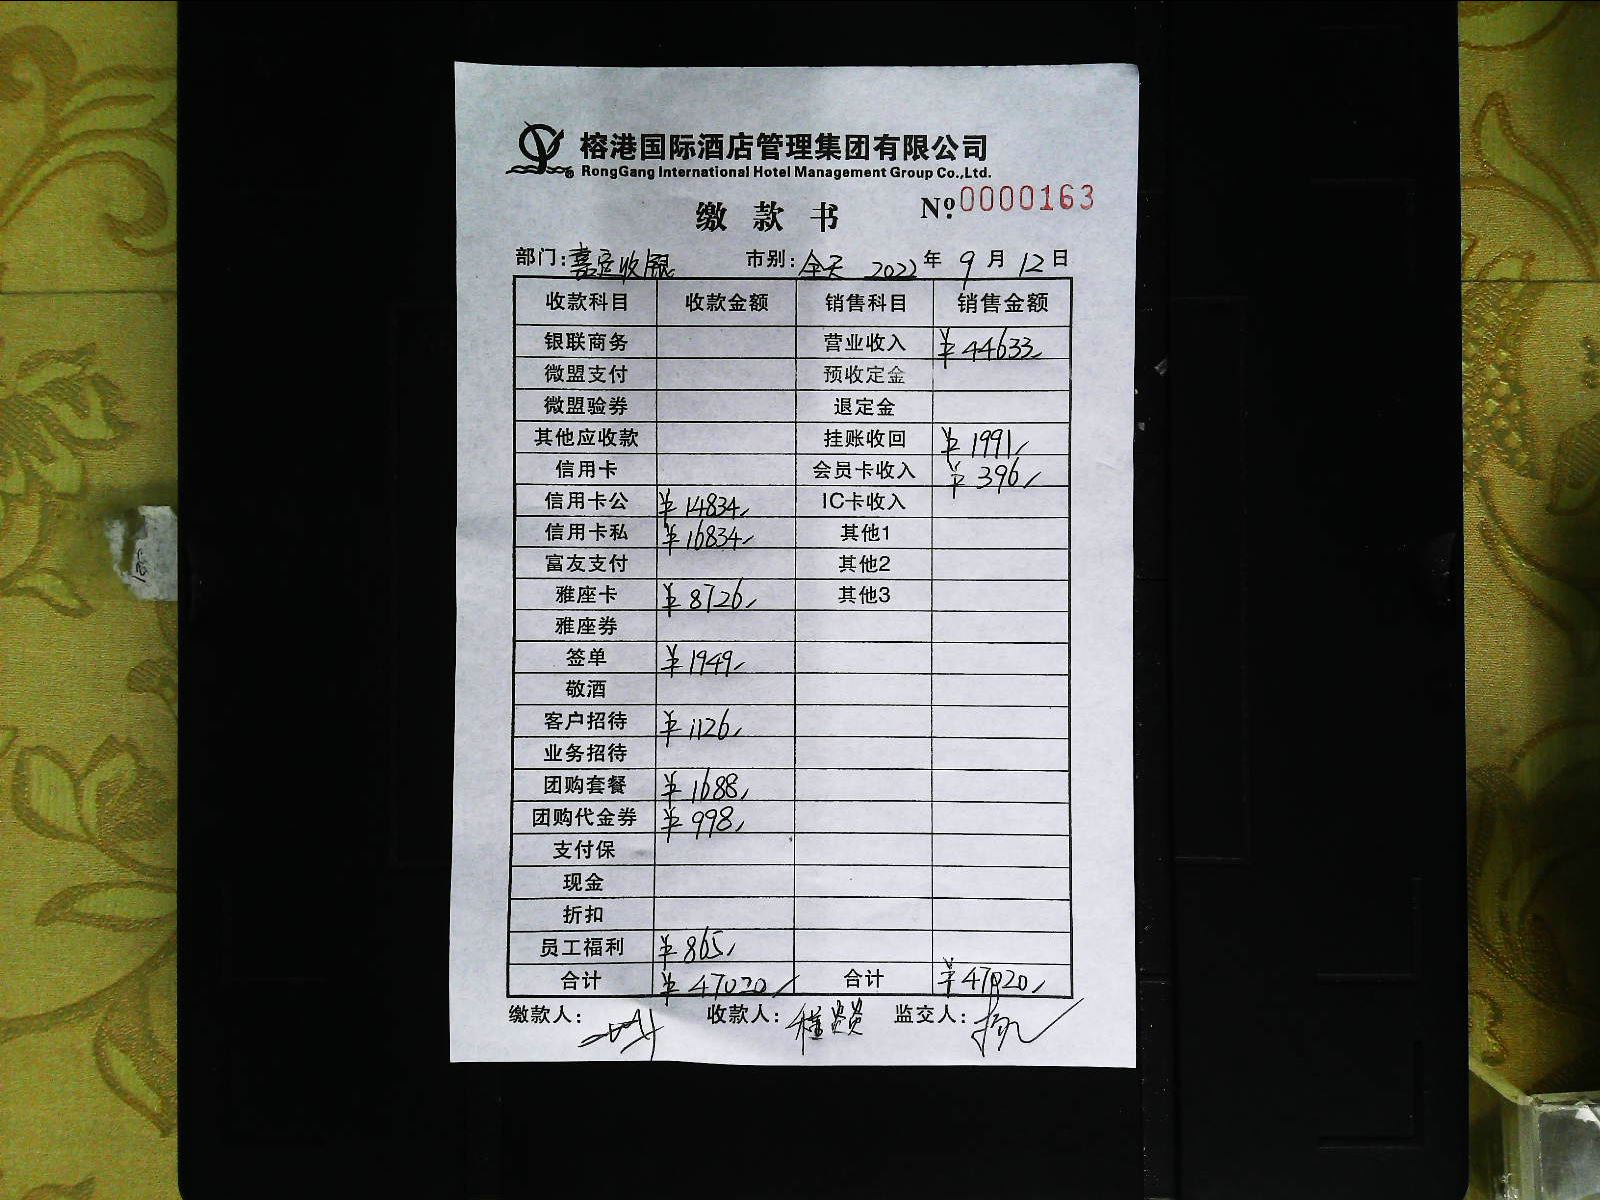 榕港国际酒店管理集团有限公司
RongGang International Hotel Management Group Co.,Ltd.
缴款书 Nº:0000163
部门:嘉定收银 市别:全天 2022年9月12日
收款科目 收款金额 销售科目 销售金额
银联商务 营业收入 ¥44633
微盟支付 预收定金
微盟验券 退定金
其他应收款 挂账收回 ¥1991
信用卡 会员卡收入 ¥396
信用卡公 ¥14834 IC卡收入
信用卡私 ¥16834 其他1
富友支付 其他2
雅座卡 ¥8726 其他3
雅座券
签单 ¥1949
敬酒
客户招待 ¥1126
业务招待
团购套餐 ¥1688
团购代金券 ¥998
支付保
现金
折扣
员工福利 ¥865
合计 ¥47020 合计 ¥47020
缴款人: 收款人: 监交人: